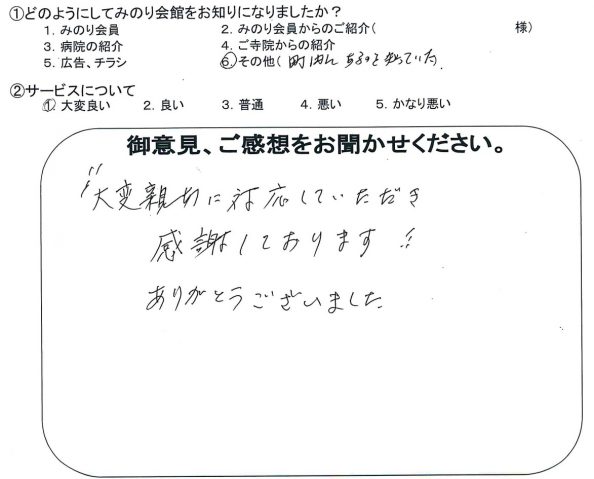 ①どのようにしてみのり会館をお知りになりましたか？
1. みのり会員 2. みのり会員からのご紹介( 様)
3. 病院の紹介 4. ご寺院からの紹介
5. 広告、チラシ 6. その他(
②サービスについて
1. 大変良い 2. 良い 3. 普通 4. 悪い 5. かなり悪い
御意見、ご感想をお聞かせください。
〃大変親切に対応していただき
感謝しております!!
ありがとうございました